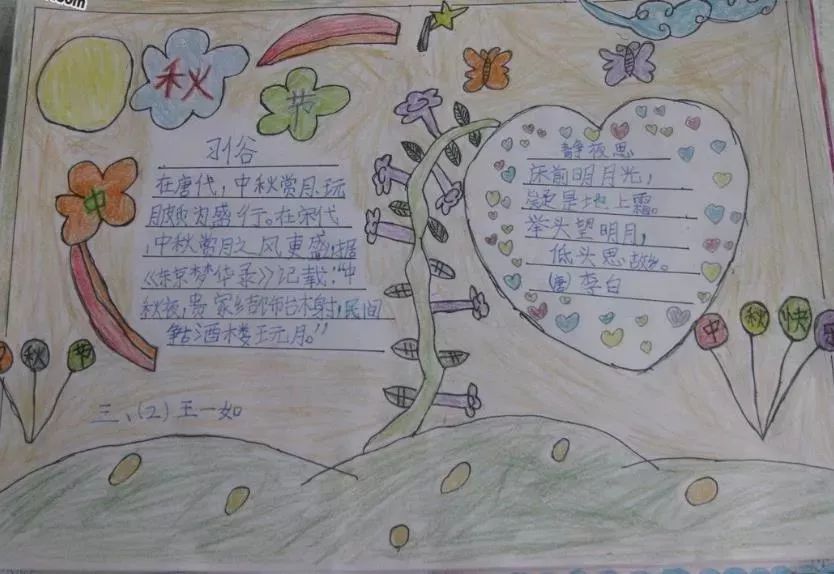 .com
秋
节
中
习俗
在唐代,中秋赏月、玩
月颇为盛行。在宋代
,中秋赏月之风更盛,据
《东京梦华录》记载:“中
秋夜,贵家结饰台榭,民间
争占酒楼玩月。”
三、(2)王一如
静夜思
床前明月光,
疑是地上霜。
举头望明月,
低头思故乡。
(唐)李白
中秋节
中秋快乐